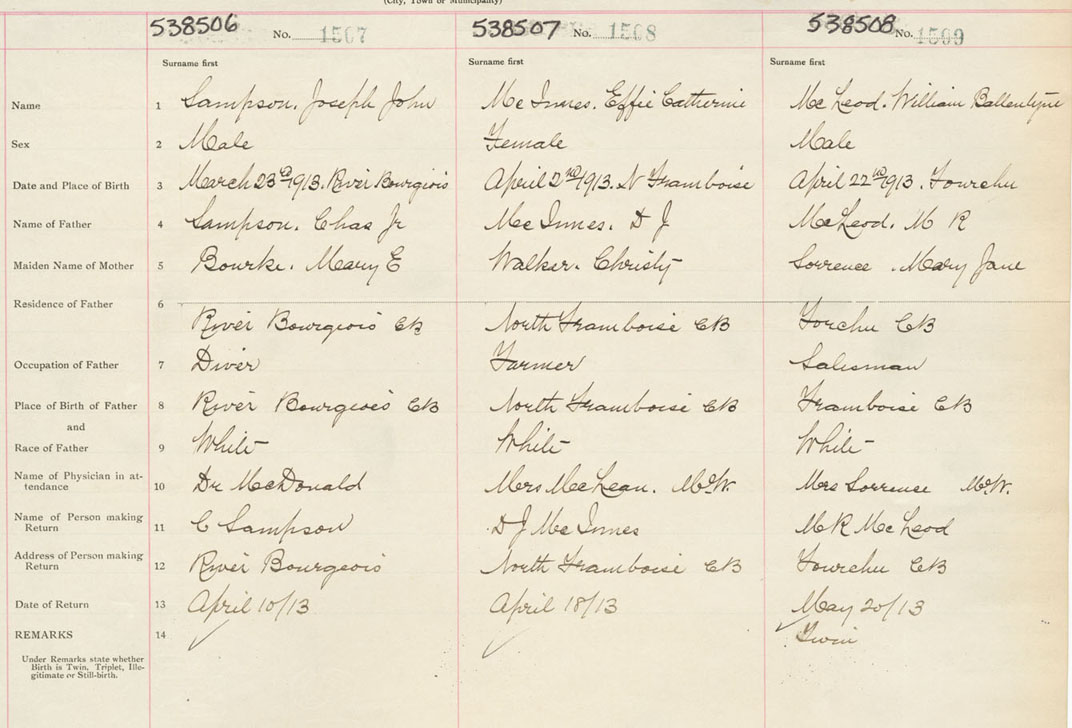 (City, Town or Municipality)
538506 No. 1507 538507 No. 1508 538508 No. 1509
Surname first Surname first Surname first
Name 1 Sampson. Joseph John Mc Innes. Effie Catherine Mc Leod. William Ballentyne
Sex 2 Male Female Male
Date and Place of Birth 3 March 23rd 1913. River Bourgeois April 2nd 1913. N Framboise April 22nd 1913. Fourchu
Name of Father 4 Sampson. Chas Jr Mc Innes. D J McLeod. M R
Maiden Name of Mother 5 Bourke. Mary E Walker. Christy Sorrence. Mary Jane
Residence of Father 6 River Bourgeois CB North Framboise CB Forchu CB
Occupation of Father 7 Diver Farmer Salesman
Place of Birth of Father 8 River Bourgeois CB North Framboise CB Framboise CB
and
Race of Father 9 White White White
Name of Physician in at-
tendance 10 Dr MacDonald Mrs MacLean. McW. Mrs Sorrence McW.
Name of Person making
Return 11 C Sampson D J Mc Innes M R Mc Leod
Address of Person making
Return 12 River Bourgeois North Framboise CB Fourchu CB
Date of Return 13 April 10/13 April 18/13 May 20/13
REMARKS 14 Twin
Under Remarks state whether
Birth is Twin, Triplet, Ille-
gitimate or Still-birth.